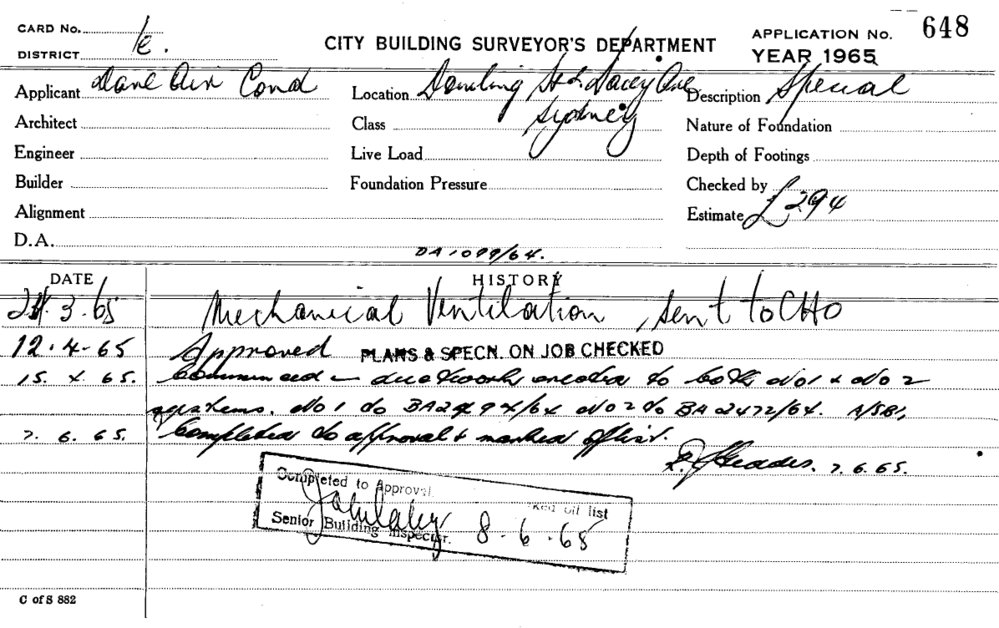 CARD No.
DISTRICT
CITY BUILDING SURVEYOR'S DEPARTMENT
APPLICATION No. 648
YEAR 1965
Applicant Dane Air Cond
Location Dowling St & Dacey Ave
Sydney
Description Special
Architect
Class
Nature of Foundation
Engineer
Live Load
Depth of Footings
Builder
Foundation Pressure
Checked by
Alignment
Estimate £294
D.A.
DA 1099/64.
DATE HISTORY
3.65 Mechanical Ventilation, sent to CHO
12.4.65 Approved PLANS & SPECN. ON JOB CHECKED
15.4.65. Commenced - ductwork erected to both No 1 & No 2
systems. No 1 do No 2 do BA 2472/64.
7.6.65. Completed to approval & marked off list.
7.6.65.
Completed to Approval
off list
Senior Building Inspector. 8.6.65
C of S 882